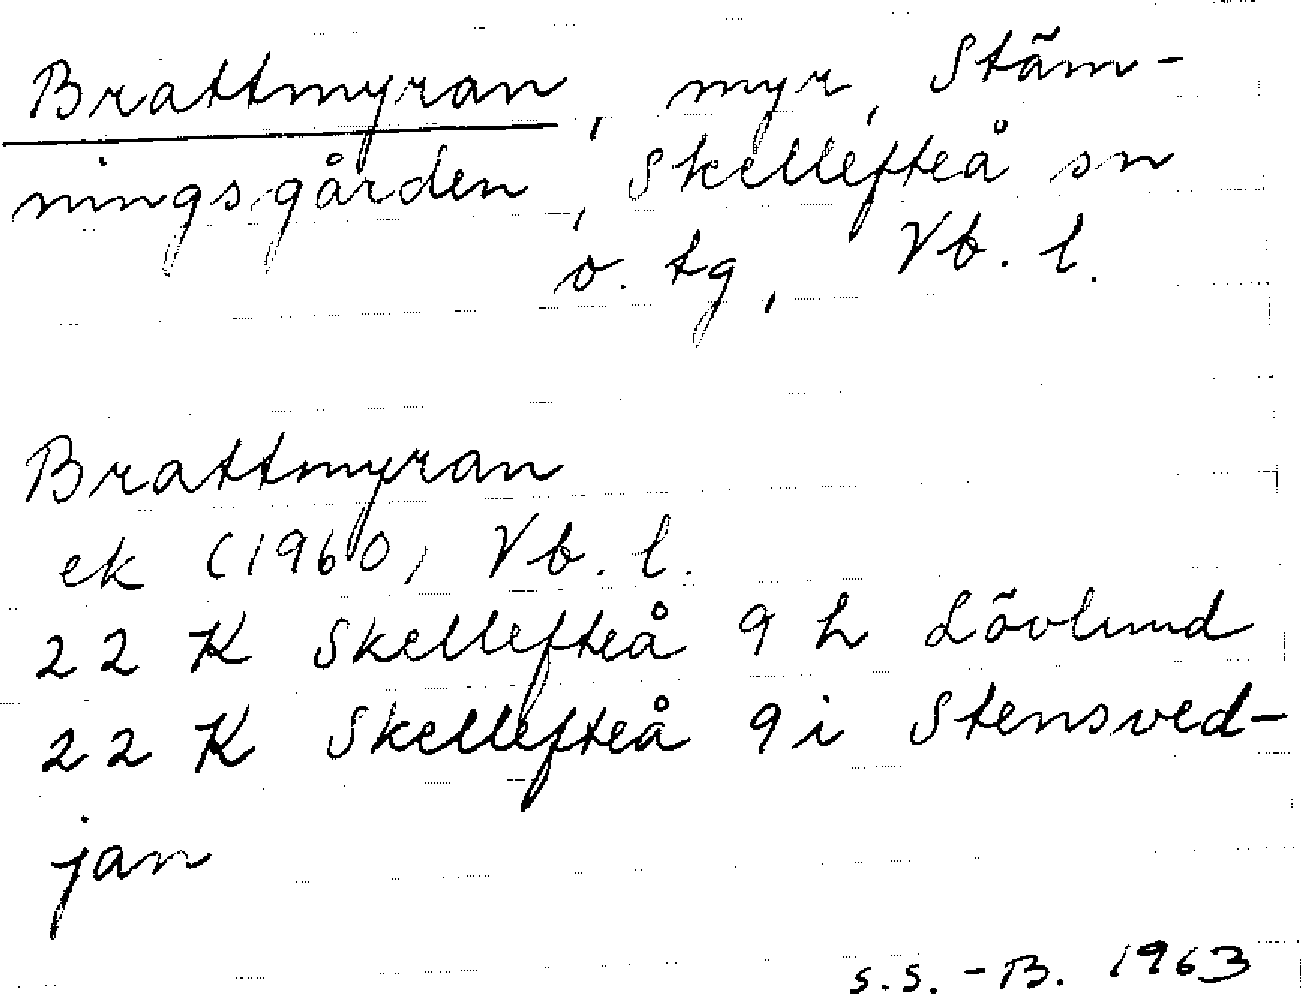 Brattmyran, myr, Stäm-
ningsgården, Skellefteå sn
o. tg, Vb. l.
Brattmyran
ek (1960) Vb. l.
22 K Skellefteå 9 h Lövlund
22 K Skellefteå 9 i Stensved-
jan
S.S.-B. 1963